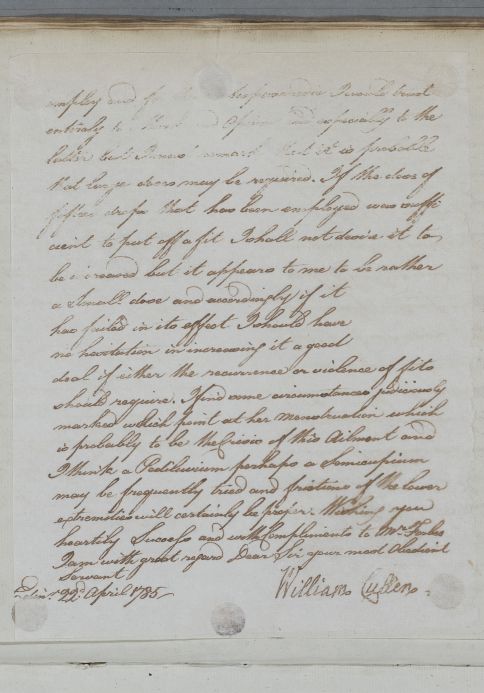 employ and for the I would trust
entirely to and Opium and especially to the
latter but I must remark that it is probable
that large doses may be required. If the dose of
fifteen drops that has been employed was suffi
cient to put off a fit I shall not desire it to
be increased but it appears to me to be rather
a small dose and accordingly if it
has failed in its effect I should have
no hesitation in increasing it a good
deal if either the recurrence or violence of fits
should require. I find some circumstances judiciously
marked which point at her menstruation which
is probably to be the Crisis of this Ailment and
I think a Pediluvium perhaps a Semicupium
may be frequently tried and frictions of the lower
extremities will certainly be proper. Wishing you
heartily Success and with Compliments to Mrs. Forbes
I am with great regard Dear Sir your most Obedient
Servant
Edinr. 22d. April 1785 William Cullen